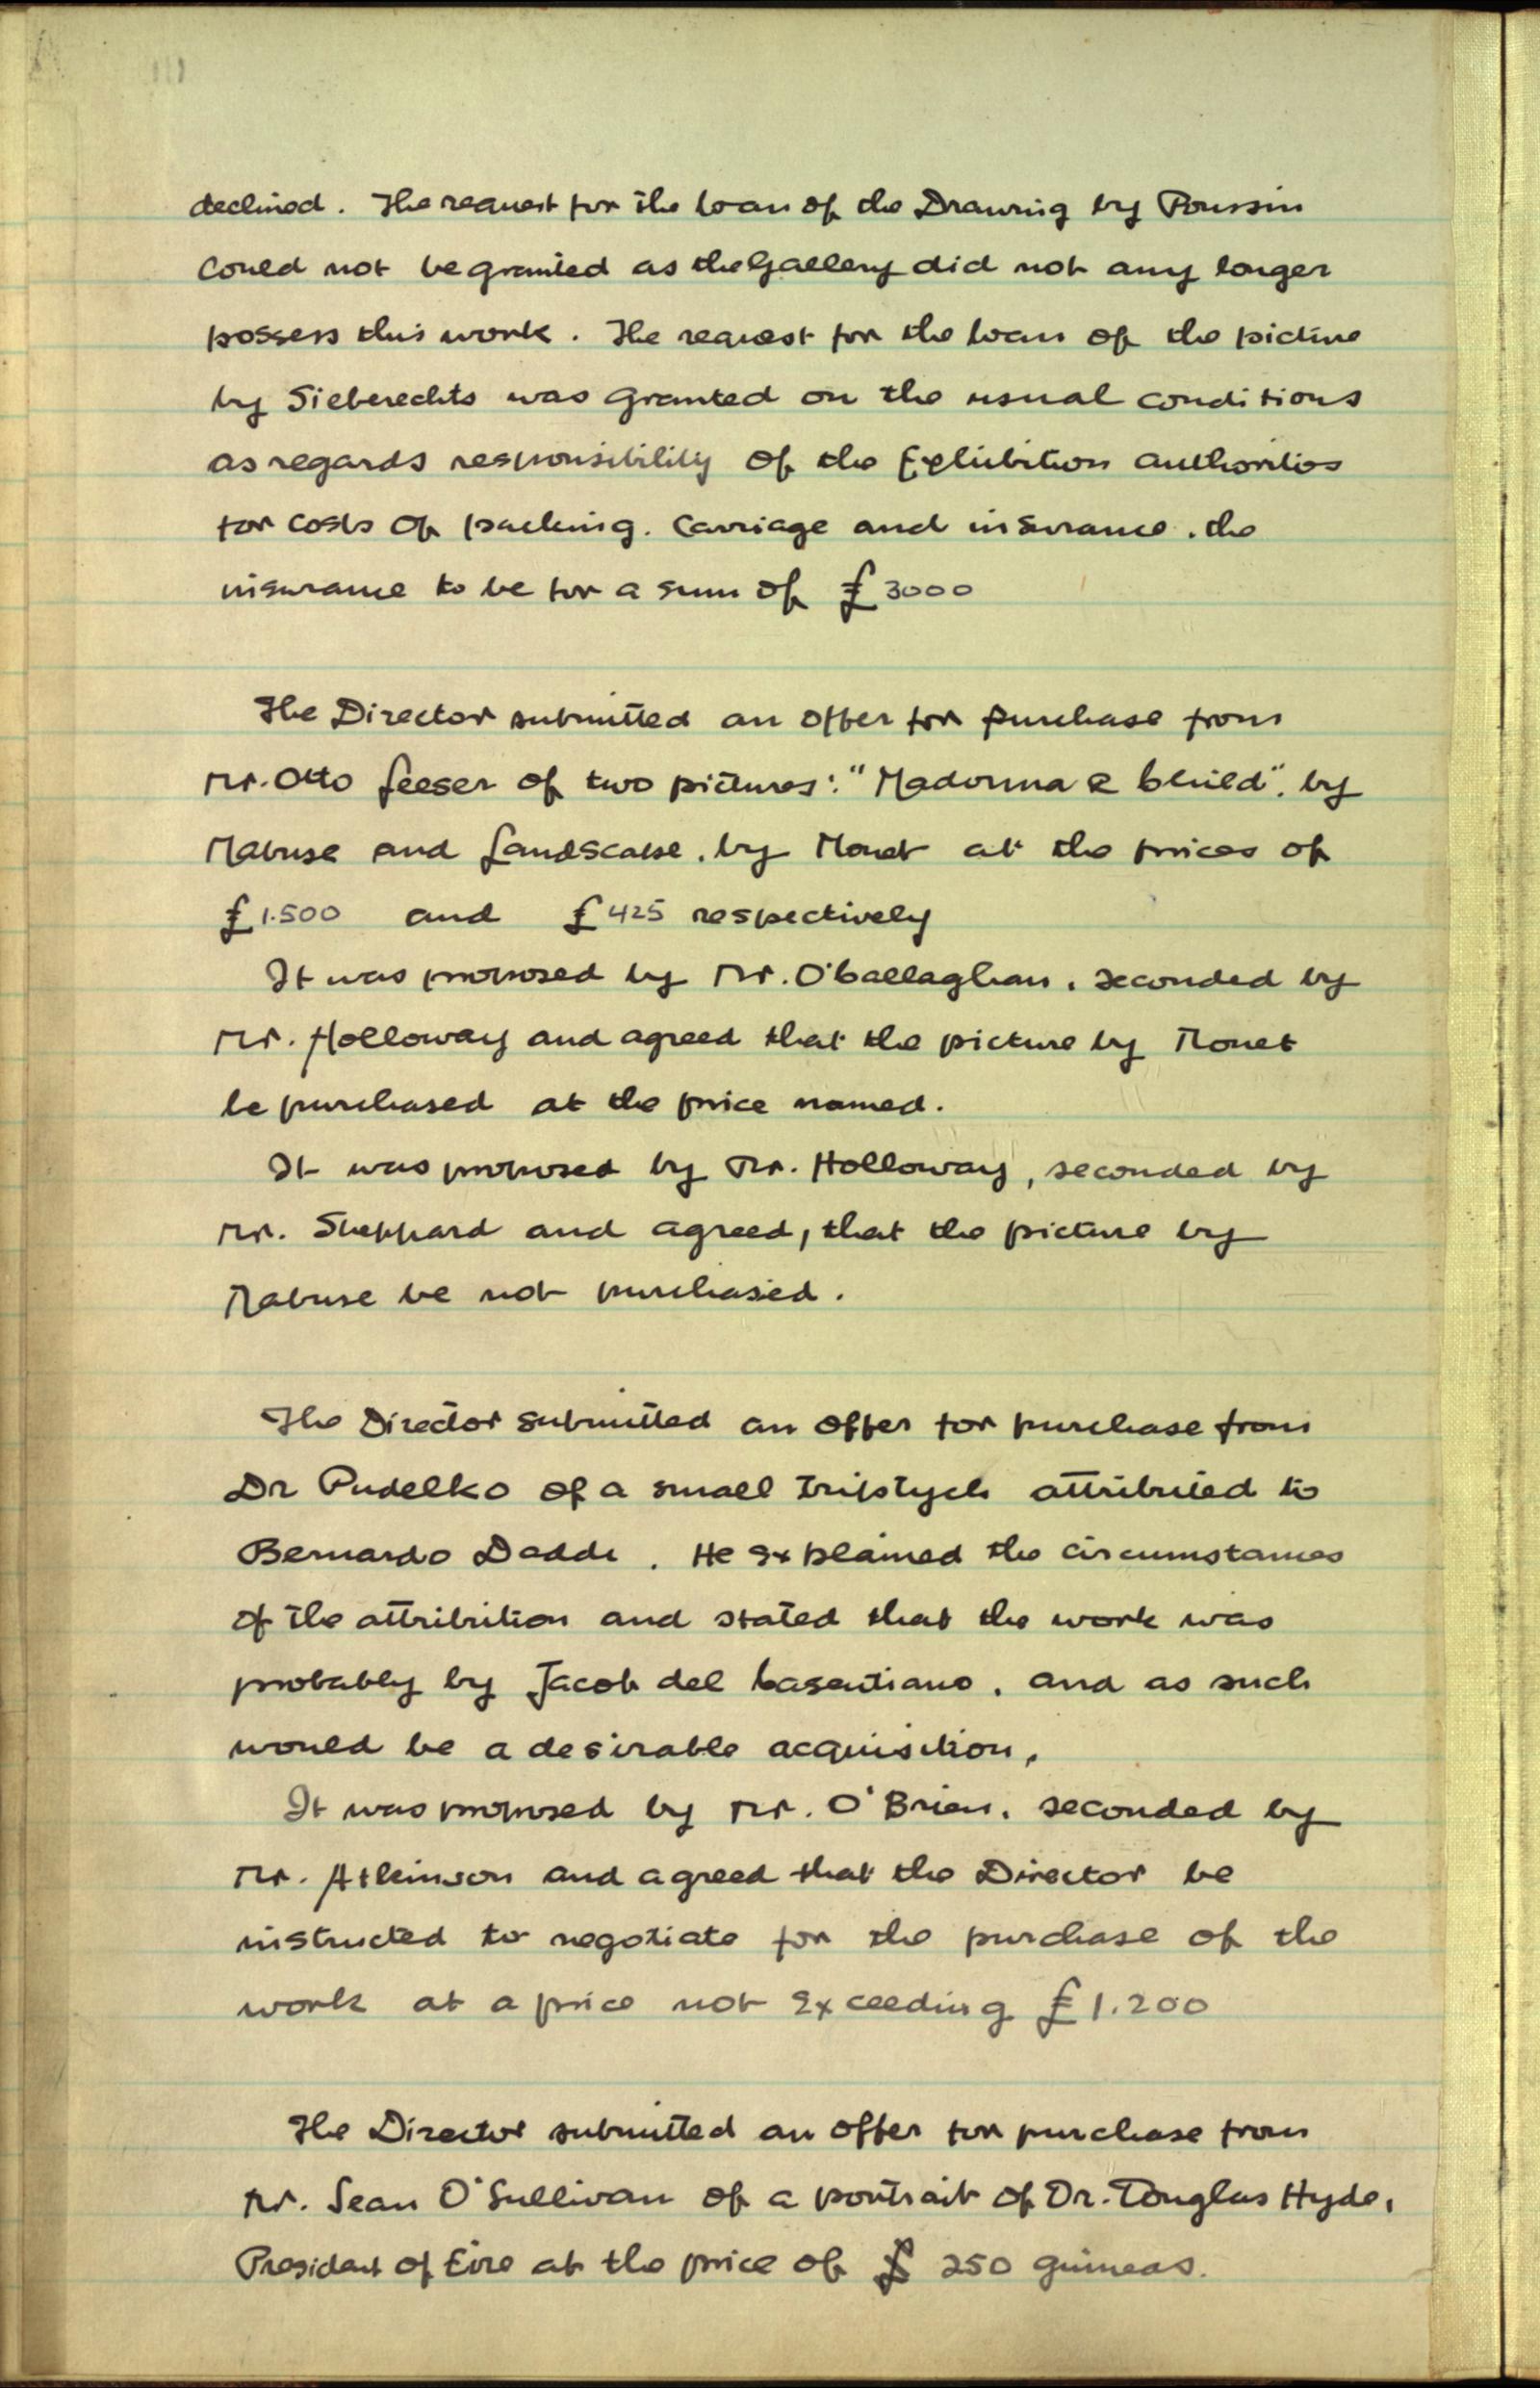 declined. The request for the loan of the Drawing by Poussin
could not be granted as the Gallery did not any longer
possess this work. The request for the loan of the picture
by Sieberechts was granted on the usual conditions
as regards responsibility of the Exhibition authorities
for costs of packing, carriage and insurance, the
insurance to be for a sum of £3000
The Director submitted an offer for purchase from
Mr. Otto Leeser of two pictures: "Madonna & Child", by
Mabuse and Landscape, by Monet at the prices of
£1.500 and £425 respectively
It was proposed by Mr. O'Callaghan, seconded by
Mr. Holloway and agreed that the picture by Monet
be purchased at the price named.
It was proposed by Mr. Holloway, seconded by
Mr. Sheppard and agreed, that the picture by
Mabuse be not purchased.
The Director submitted an offer for purchase from
Dr Pudelko of a small triptych attributed to
Bernardo Daddi. He explained the circumstances
of the attribution and stated that the work was
probably by Jacob del Casentiano, and as such
would be a desirable acquisition.
It was proposed by Mr. O'Brien, seconded by
Mr. Atkinson and agreed that the Director be
instructed to negotiate for the purchase of the
work at a price not exceeding £1.200
The Director submitted an offer for purchase from
Mr. Sean O'Sullivan of a portrait of Dr. Douglas Hyde,
President of Eire at the price of £ 250 guineas.